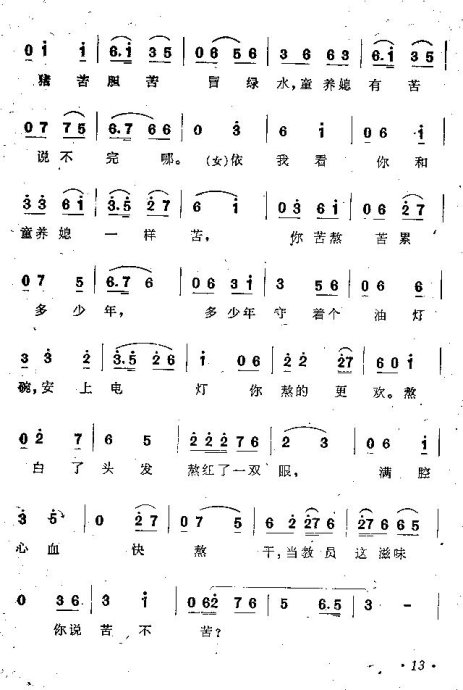 0 i i | 6·i 3 5 | 0 6 5 6 | 3 6 6 3 | 6·i 3 5 |
猪 苦 胆 苦 冒 绿 水，童 养 媳 有 苦
0 7 7 5 | 6·7 6 6 | 0 3 | 6 i | 0 6 i |
说 不 完 哪。（女）依 我 看 你 和
3 3 6 i | 3·5 2 7 | 6 i | 0 3 6 i | 0 6 2 7 |
童 养 媳 一 样 苦， 你 苦 熬 苦 累
0 7 5 | 6·7 6 | 0 6 3 i | 3 5 6 | 0 6 6 |
多 少 年， 多 少 年 守 着 个 油 灯
3 3 2 | 3·5 2 6 | i 0 6 | 2 2 2 7 | 6 0 i |
碗，安 上 电 灯 你 熬 的 更 欢。熬
0 2 7 | 6 5 | 2 2 2 7 6 | 2 3 | 0 6 i |
白 了 头 发 熬 红 了 一 双 眼， 满 腔
3 5 | 0 2 7 | 0 7 5 | 6 2 2 7 6 | 2 7 6 6 5 |
心 血 快 熬 干，当 教 员 这 滋 味
0 3 6 | 3 i | 0 6 2 7 6 | 5 6·5 | 3 － |
你 说 苦 不 苦？
· 13 ·